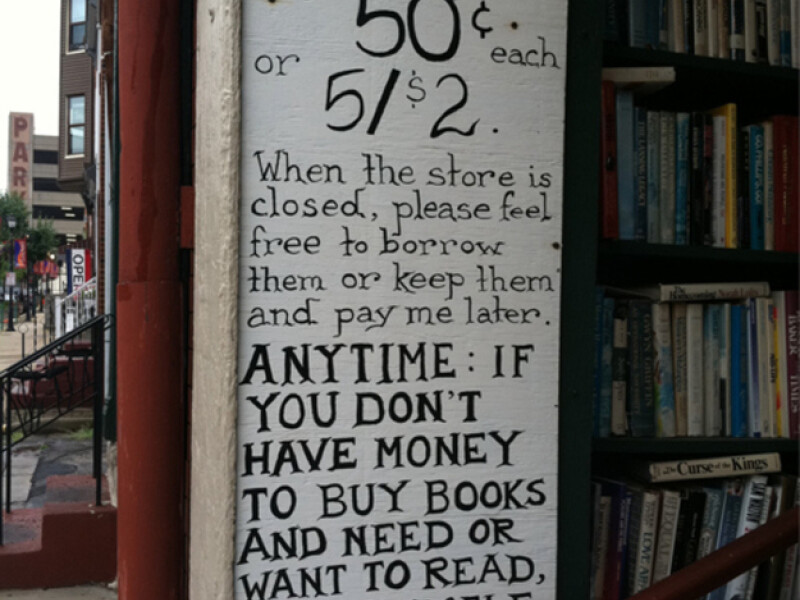 50¢
or each
5/$2.
When the store is
closed, please feel
free to borrow
them or keep them
and pay me later.
ANYTIME: IF
YOU DON'T
HAVE MONEY
TO BUY BOOKS
AND NEED OR
WANT TO READ,
PAR
OPEN
The Curse of the Kings